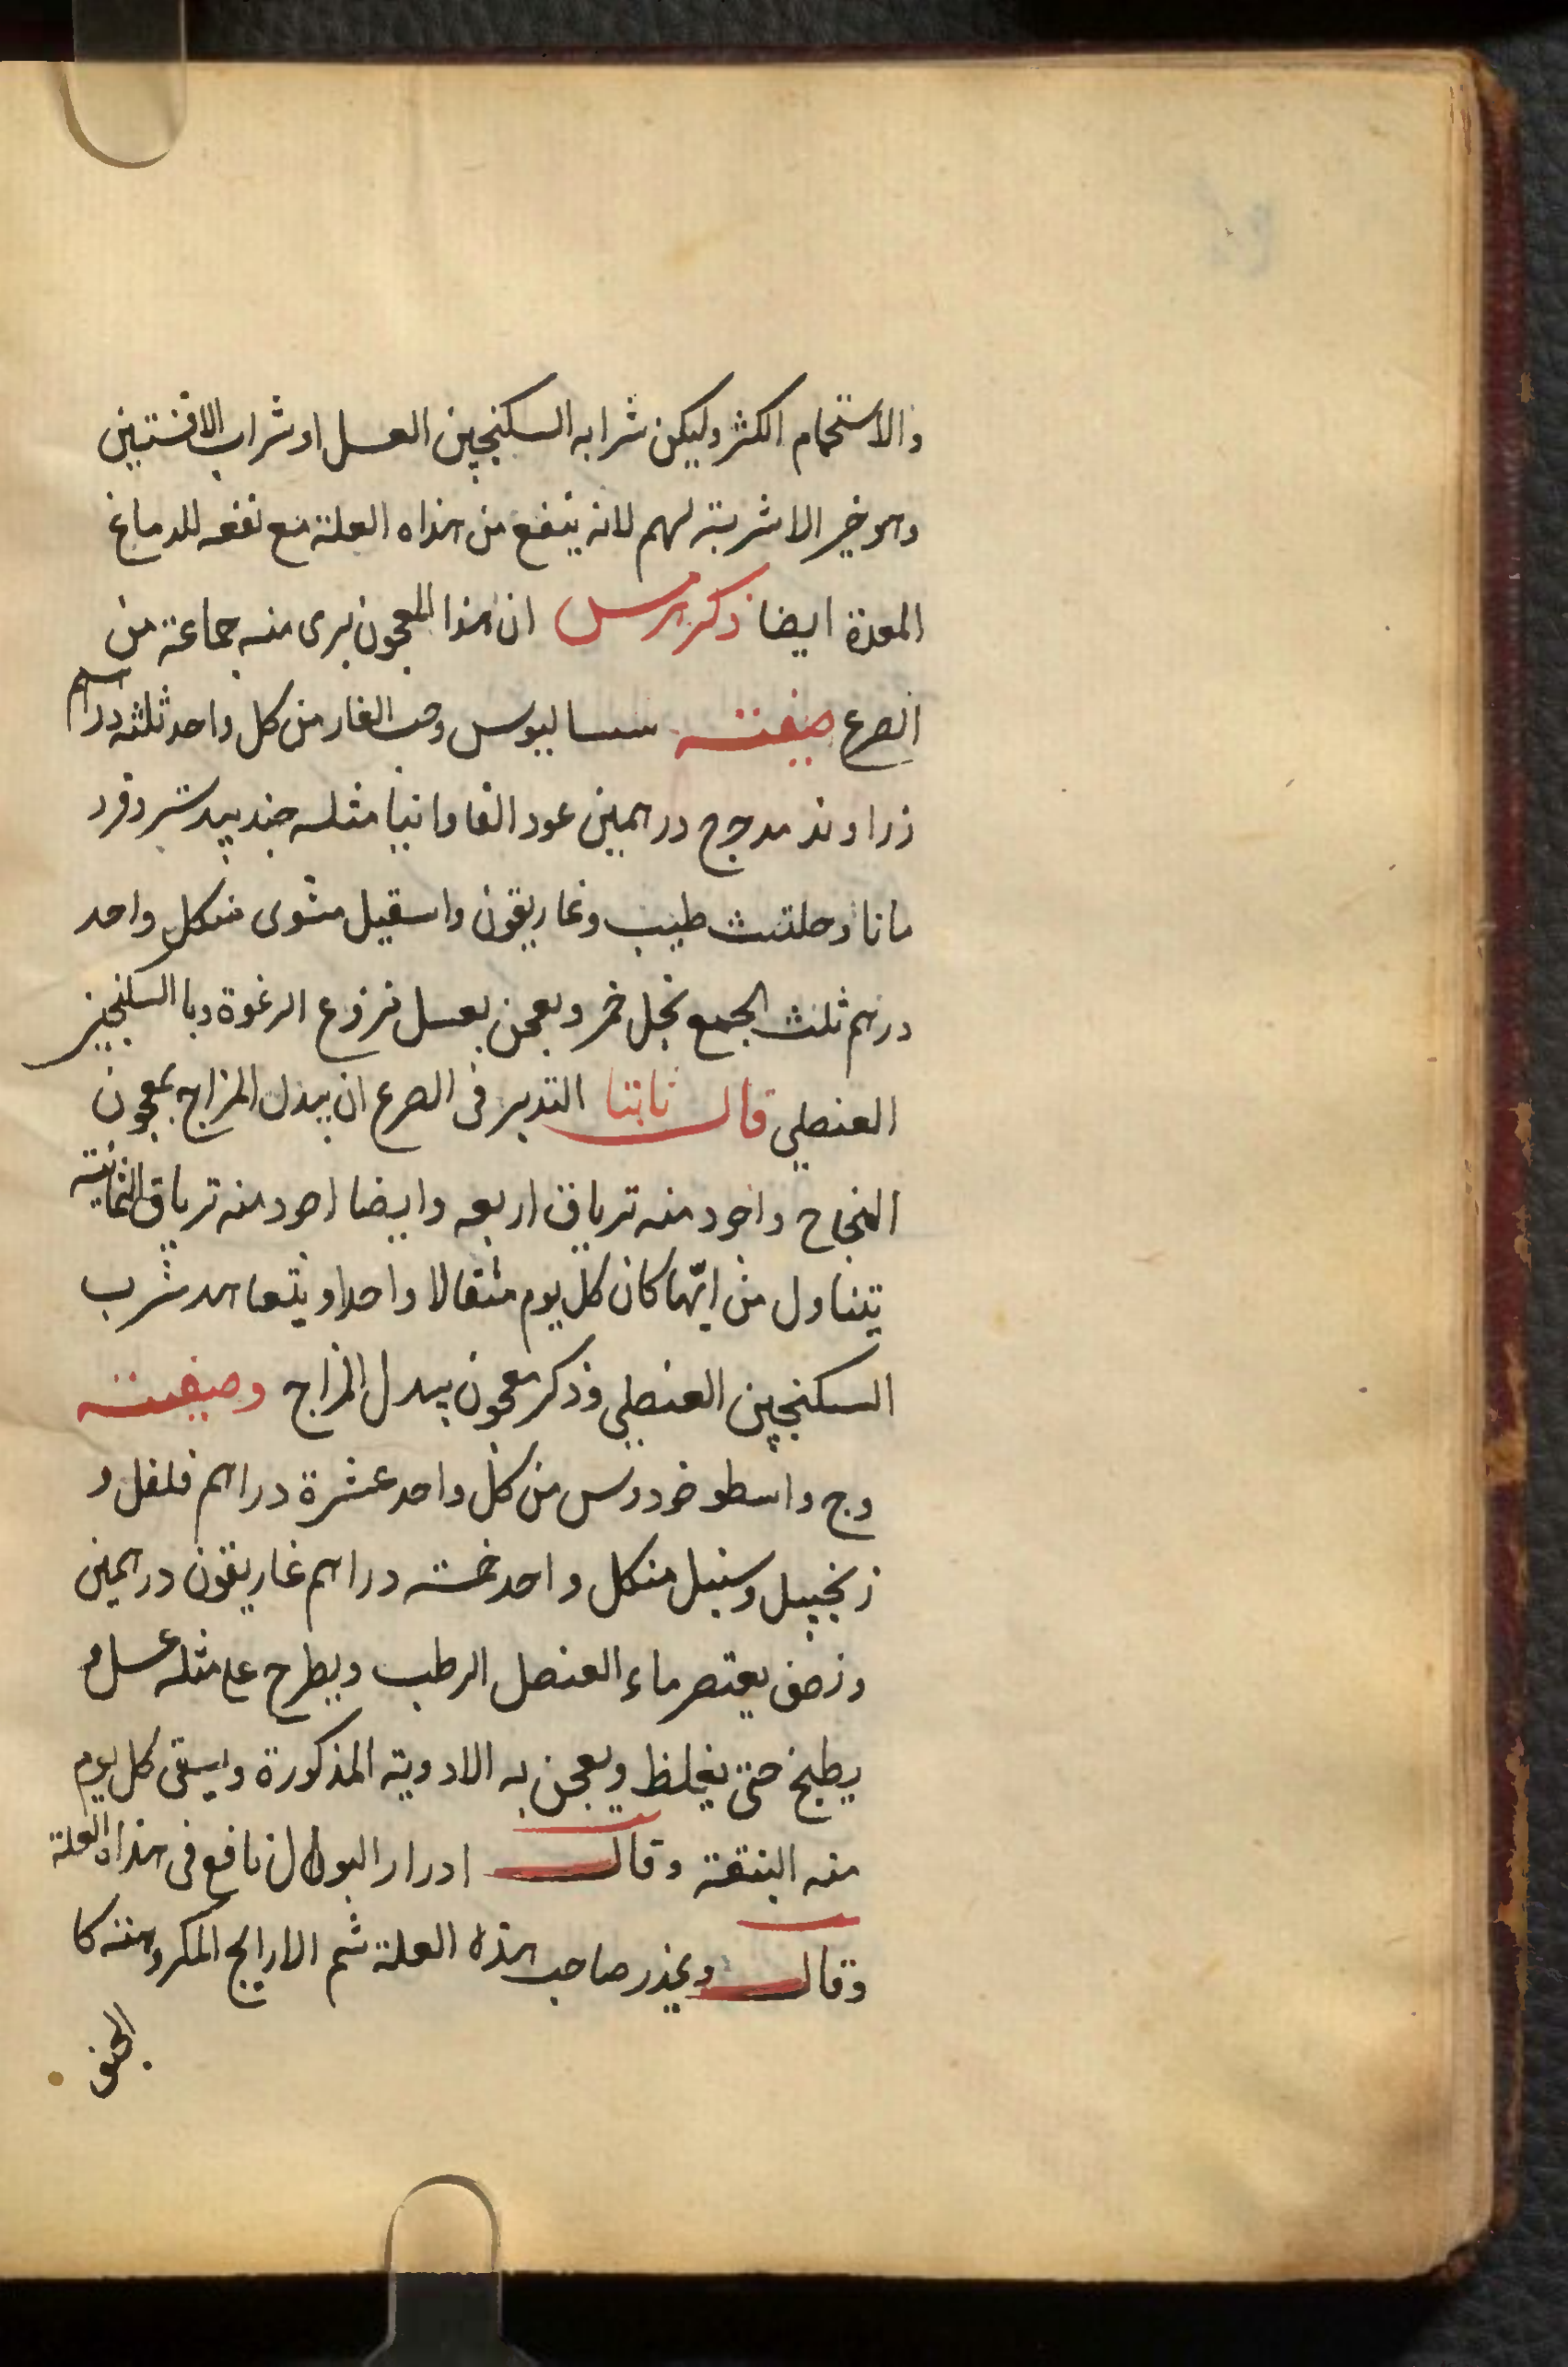 والاستحمام الكثر وليكن شرابه السكنجبين العسل او شراب الافنستين
وهو خير الاشربة لهم لانه ينفع من هذاه العلة مع نفعه للدماغ
المعدة ايضا ذكر هرمس ان هذا المعجون برى منه جماعة من
الصرع صفته سساليوس وحب الغار من كل واحد ثلثه دراهم
زراوند مدحرج درهمين عود الفاوانيا مثله جندبيدستر وقرد
مانا وحلتيث طيب وغاريقون واسقيل مشوى منكل واحد
درهم ثلث الجمع بخل خمر ويعجن بعسل نزوع الرغوة وبا السكنجبين
العنصلي قال ثابتا التدبير فى الصرع ان يبدل المزاج بمعجون
النجاح واجود منه ترياق اربعه وايضا اجود منه ترياق الثمانية
يتناول من ايهّما كان كل يوم مثقالا واحدا ويتعاهد شرب
السكنجبين العنصلي وذكر معجون يبدل المزاج وصفته
وج واسطوخودوس من كل واحد عشرة دراهم فلفل و
زنجبيل وسنبل منكل واحد خمسه دراهم غاريقون درهمين
ونصف يعتصر ماء العنصل الرطب ويطرح على مثله عسل و
يطبخ حتى يغلظ ويعجن به الادوية المذكورة ويسقى كل يوم
منه البنقة وقال ادرار البول نافع فى هذاه العلة
وقال ويحذر صاحب هذه العلة شم الارايح المكروهته كا
الجنف